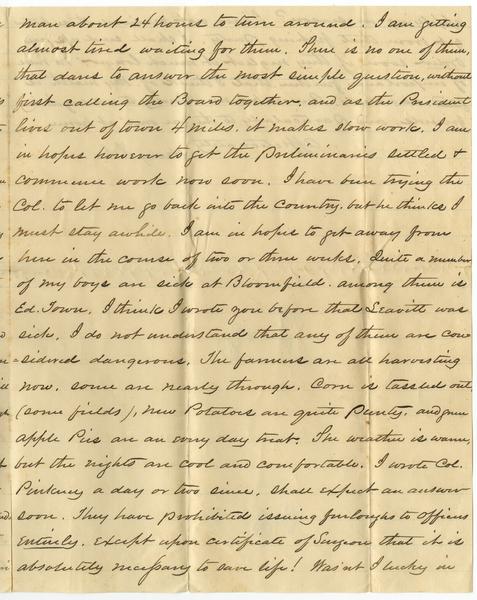 man about 24 hours to turn around. I am getting
almost tired waiting for them. There is no one of them,
that dares to answer the most simple question, without
first calling the Board together, and as the President
lives out of town 4 miles. it makes slow work. I am
in hopes however to get the Preliminaries settled &
commence work now soon. I have been trying the
Col. to let me go back into the Country. but he thinks I
must stay awhile. I am in hopes to get away from
here in the course of two or three weeks. Quite a number
of my boys are sick at Bloomfield. among them is
Ed. Town. I think I wrote you before that Leavitt was
sick. I do not understand that any of them are con
sidered dangerous. The farmers are all harvesting
now. some are nearly through. Corn is tassled out,
(some fields), new Potatoes are quite Plenty. and green
apple Pies are an every day treat. The weather is warm,
but the nights are cool and comfortable. I wrote Col.
Pinkney a day or two since. shall expect an answer
soon. They have prohibited issuing furloughs to officers
entirely. except upon certificate of Surgeon that it is
absolutely necessary to save life! Wasn't I lucky in